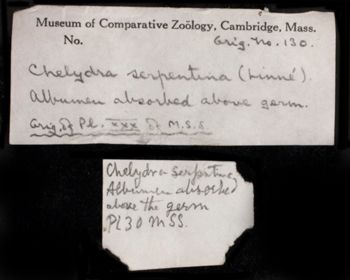 Museum of Comparative Zoölogy, Cambridge, Mass.
No. Orig. No. 130.
Chelydra serpentina (Linné).
Albumen absorbed above germ.
Orig. of Pl. XXX of M.S.S
Chelydra serpentina
Albumen absorbed
above the germ
Pl 30 MSS.